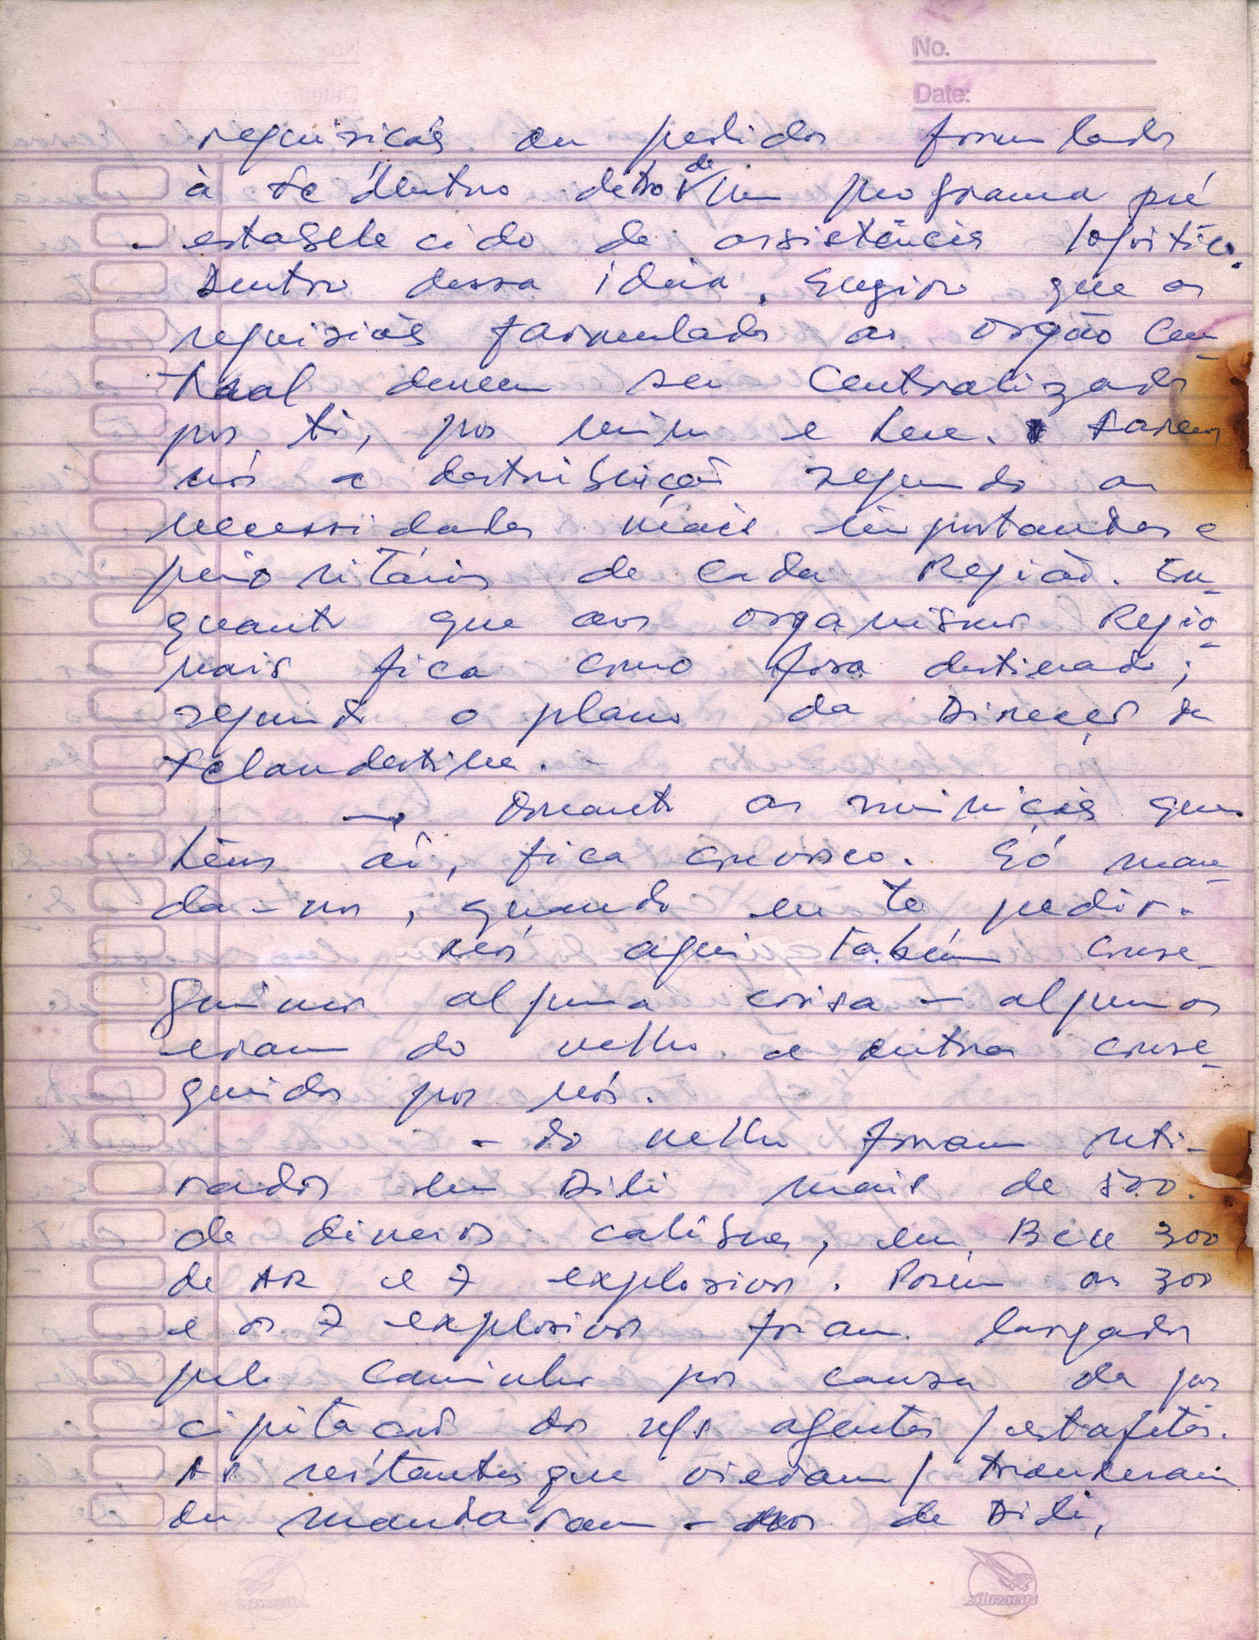 No.
Date:
requisicões ou pedidos formulados
à Fc dentro detro de um programa pré
estabelecido de assistência logística.
Dentro dessa ideia, sugiro que as
requisiões formulados ao orgão Cen-
tral devem ser centralizados
por ti, por mim e Lere. Faremos
nós a distribuição segundo as
necessidades mais importantes e
prioritários de cada Região. En-
quanto que aos organismos Regio-
nais fica como fora destinado;
segundo o plano da Direcção da
Fclandestina.
Quanto as munições que
tens aí, fica convosco. Só man-
da-nos, quando eu te pedir.
Nós aqui tabém conse-
guimos alguma coisa - algumas
eram do velho e outras conse-
guidos por nós.
- do velho foram reti-
rados em Dili mais de 500.
de diversos calibres, em 300
de AR e 7 explosivos. Porém os 300
e os 7 explosivos foram largados
pelo caminho por causa da pre
cipitacão dos agentes / estafetas.
As restantes que vieram / trouxeram
ou mandaram-nos de Dili,